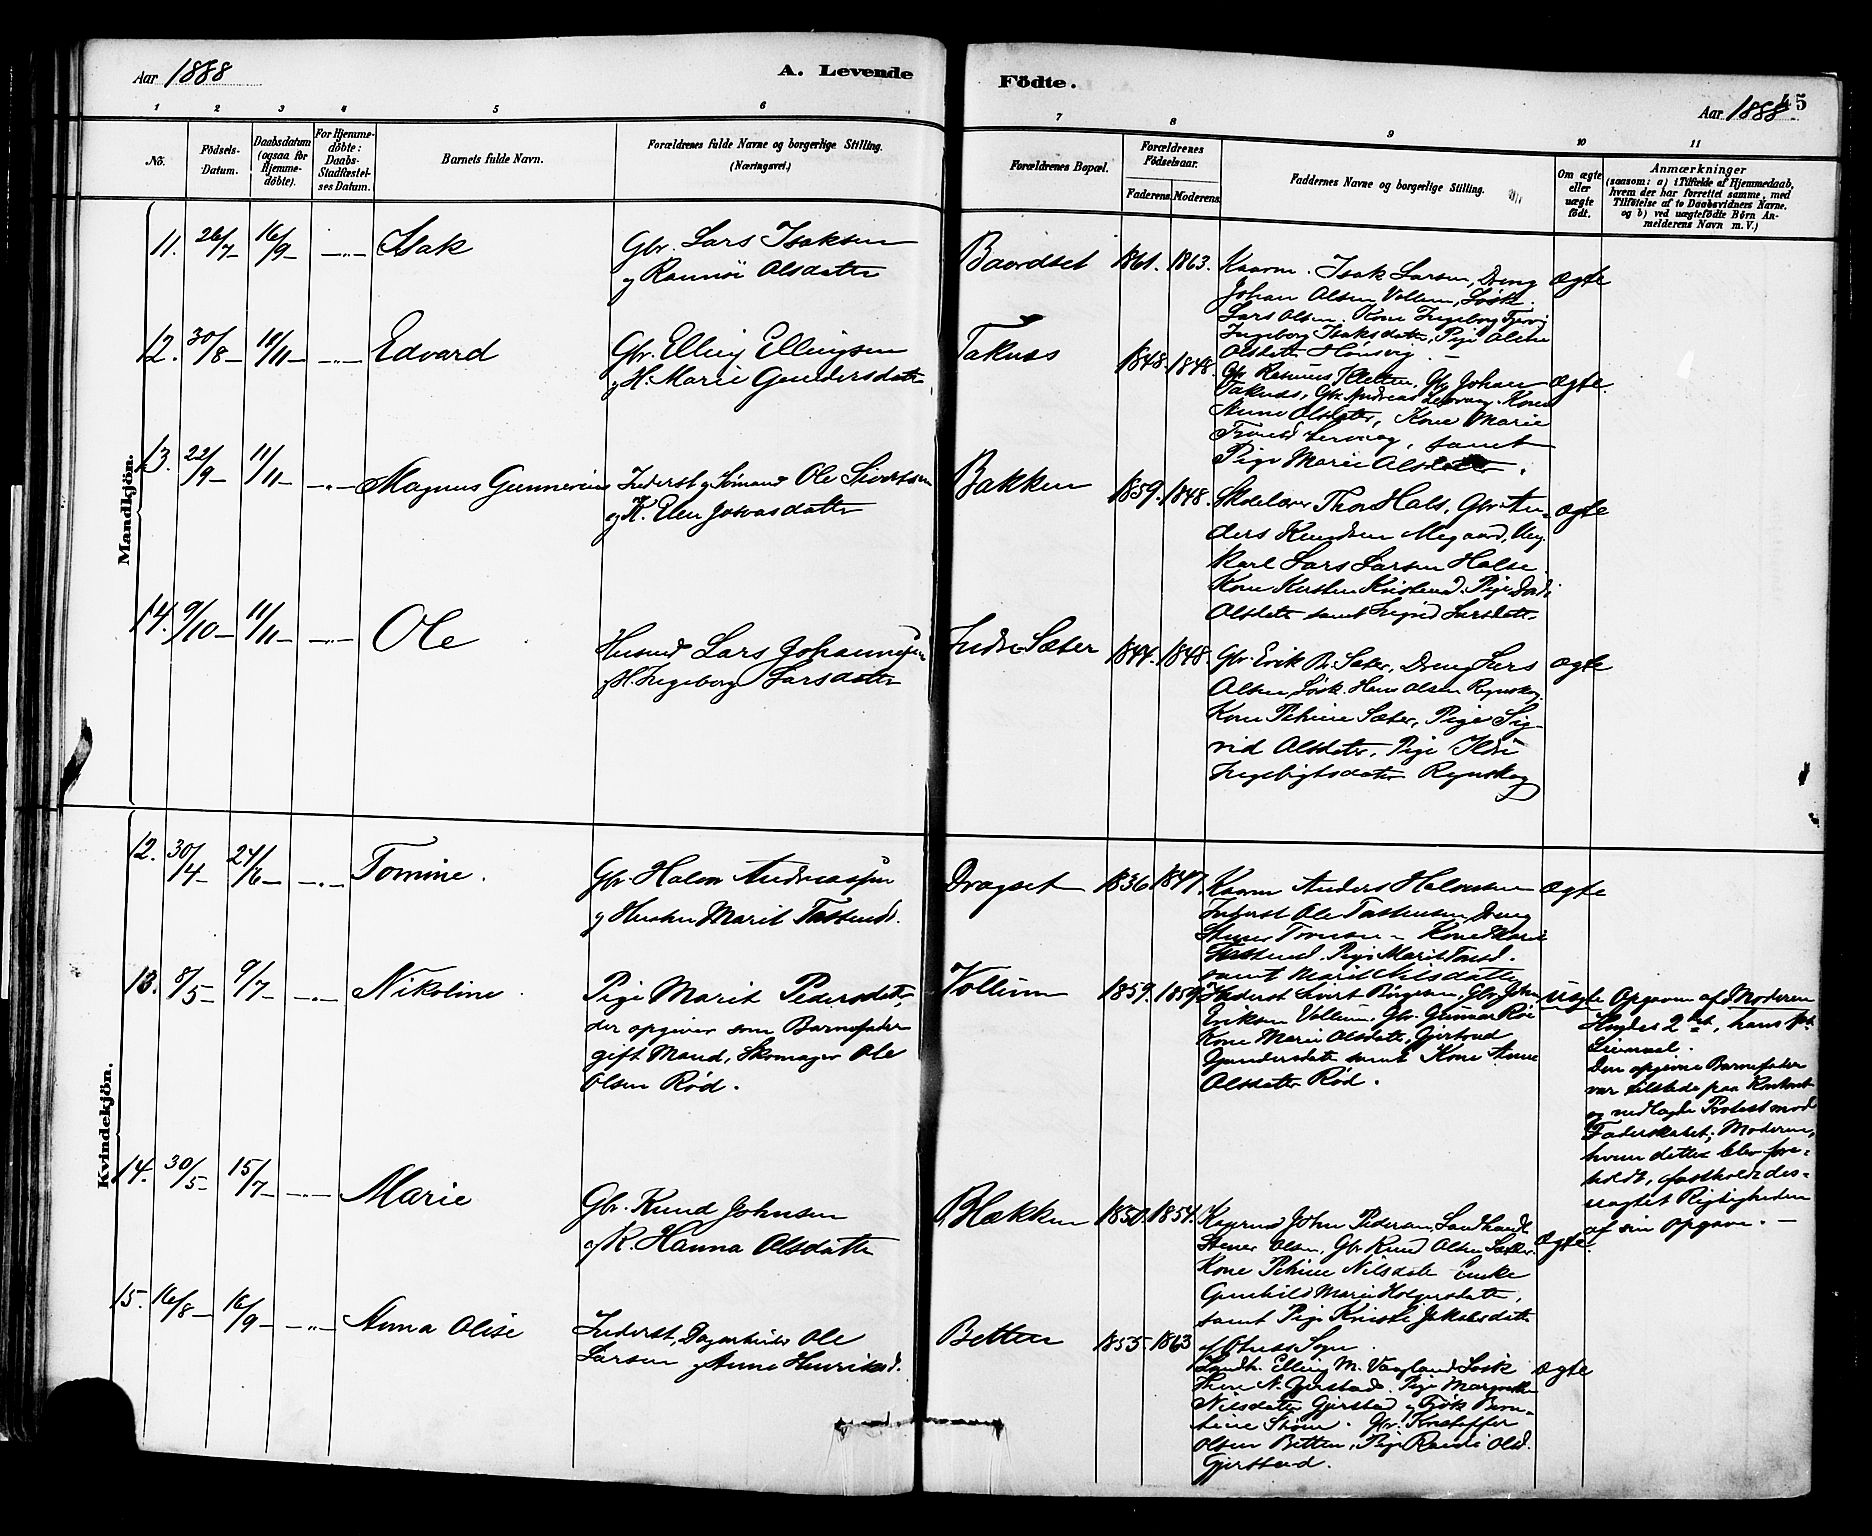 Aar 1888
A. Levende
Födte.
Aar 1888
45
1 2 3 4 5 6 7 8 9 10 11
No.
Födsels-
Datum.
Daabsdatum
(ogsaa för
Hjemme-
döbte).
For Hjemme-
döbte:
Daabs-
Stadfæstel-
ses Datum.
Barnets fulde Navn.
Forældrenes fulde Navne og borgerlige Stilling.
(Næringsvei.)
Forældrenes Bopæl.
Forældrenes
Födselsaar.
Faderens. Moderens.
Faddernes Navne og borgerlige Stilling.
Om ægte
eller
uægte
födt.
Anmærkninger
(saasom: a) i Tilfælde af Hjemmedaab,
hvem der har forrettet samme, med
Tilföielse af to Daabsvidners Navne.
og b) ved uægtefödte Börn An-
melderens Navn m. V.)
Mandkjön.
11. 26/7 16/9 Isak
Gbr. Lars Isaksen
og Rannöi Olsdatter
Baardset 1861. 1863.
Isak Larsen, Dreng
Johan Olsen Vollum, Løsk.
Lars Olsen. Kone Ingeborg
Ingeborg Isaksdatter, Pige
Olsdatter
ægte
12. 30/8 11/11 Edvard
Gbr. Elling Ellingsen
og H. Marie Gundersdatter
Taknes 1848. 1848.
Gbr Rasmus Kletten, Gbr Johan
Taknes, Gbr. Andreas Kone
Anne Olsdatter, Kone Marie
samt
Pige Marie Olsdatter.
ægte.
13. 22/9 11/11 Magnus Gunnerius
Inderst og Sømand Ole Sivertsen
og K. Elen Josvasdatter
Bakken 1859. 1848.
Skolelærer Thor Hals, Gbr An-
ders Knudsen Megaard, Ung-
karl Lars Larsen Halse
Kone Kirsten Pige
Olsdatter samt Ingrid Larsdatter
ægte
14. 9/10 11/11 Ole
Husmd Lars Johannesen
og H. Ingeborg Larsdatter
Indre Sæter 1844. 1848.
Gbr. Erik Sæter, Dreng Lars
Olsen, Løsk. Hans Olsen Rønskog.
Kone Petrine Sæter, Pige Sig-
rid Olsdatter, Pige Ildri
Ingebrigtsdatter Rønskog
ægte
Kvindekjön.
12. 30/4 24/6 Tomine.
Gbr. Halvor Andreassen
og Hustru Marit Tostensd.
Dragset 1836 1847.
Anders Halvorsen
Inderst Ole Tostensen, Dreng
Stener Kone Marie
Pige Marit
samt Marit Nilsdatter
ægte
13. 8/5 9/7 Nikoline
Pige Marit Pedersdatter
der opgiver som Barnefader
gift Mand, Skomager Ole
Olsen Rød.
Vollum 1859. 1859.
Inderst Sivert Gbr. John
Eriksen Vollum, Gbr. Gunnar Røe
Kone Marie Olsdatter, Gjertrud
Gundersdatter samt Kone Anne
Olsdatter Rød.
uægte
Opgaven af Moderen
Hendes 2det, hans 1ste
Leiermaal.
Den opgivne Barnefader
var tilstede paa Kontoret
og nedlagde Protest mod
Faderskabet; Moderen,
hvem dette blev fore-
holdt, fastholdt des-
uagtet Rigtigheden
af sin Opgave. —
14. 30/5 15/7 Marie
Gbr. Knud Johnsen
og K. Hanna Olsdatter
Blækken 1850. 1854.
John Pedersen, Landhandl.
Stener Olsen, Gbr Knud Olsen Sæter.
Kone Petrine Nilsdatter Enke
Gunhild Marie Holgersdatter,
samt Pige Jakobsdatter
ægte.
15. 16/8 16/9 Anna Olise
Inderst, Dagarbeider Ole
Larsen og Anne Henriksd.
Betten 1855. 1863
Landh. Elling M. Vaagland Løsk
N. Gjerstad. Pige Margrethe
Nilsdatter Gjerstad
Gbr. Kristoffer
Olsen Betten, Pige Randi Olsd.
Gjerstad.
ægte